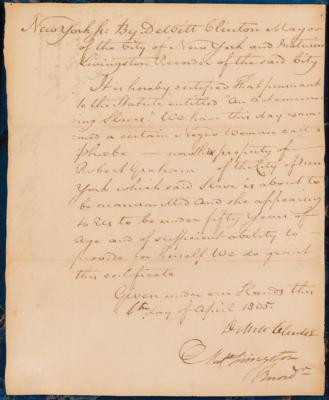 New York ss: By Dewitt Clinton Mayor
of the City of New York and Maturin
Livingston Recorder of the said City
It is hereby certified That pursuant
to the Statute entitled An act concer
ning Slaves" We have this day exam
ined a certain Negro Woman called
Phoebe — now the property of
Robert Graham of the City of New
York which said Slave is about to
be manumitted And she appearing
to Us to be under fifty Years of
Age and of sufficient ability to
provide for herself We do grant
this certificate
Given under our Hands this
6th day of April 1805.
DeWitt Clinton
Mat Livingston
Recordr